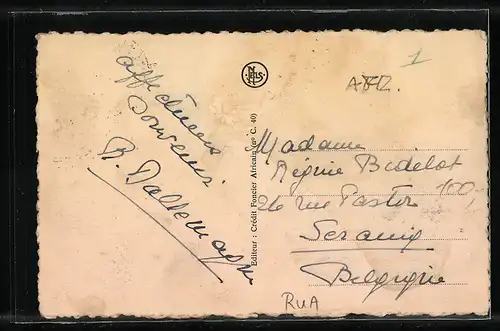 affectueux
souvenir.
R. Dallemagne
NELS
Editeur : Crédit Foncier Africain (n° C. 40)
AFIZ.
1
Madame
Régine Bidelot
26 rue Pastor
100,-
Seraing
Belgique
RUA